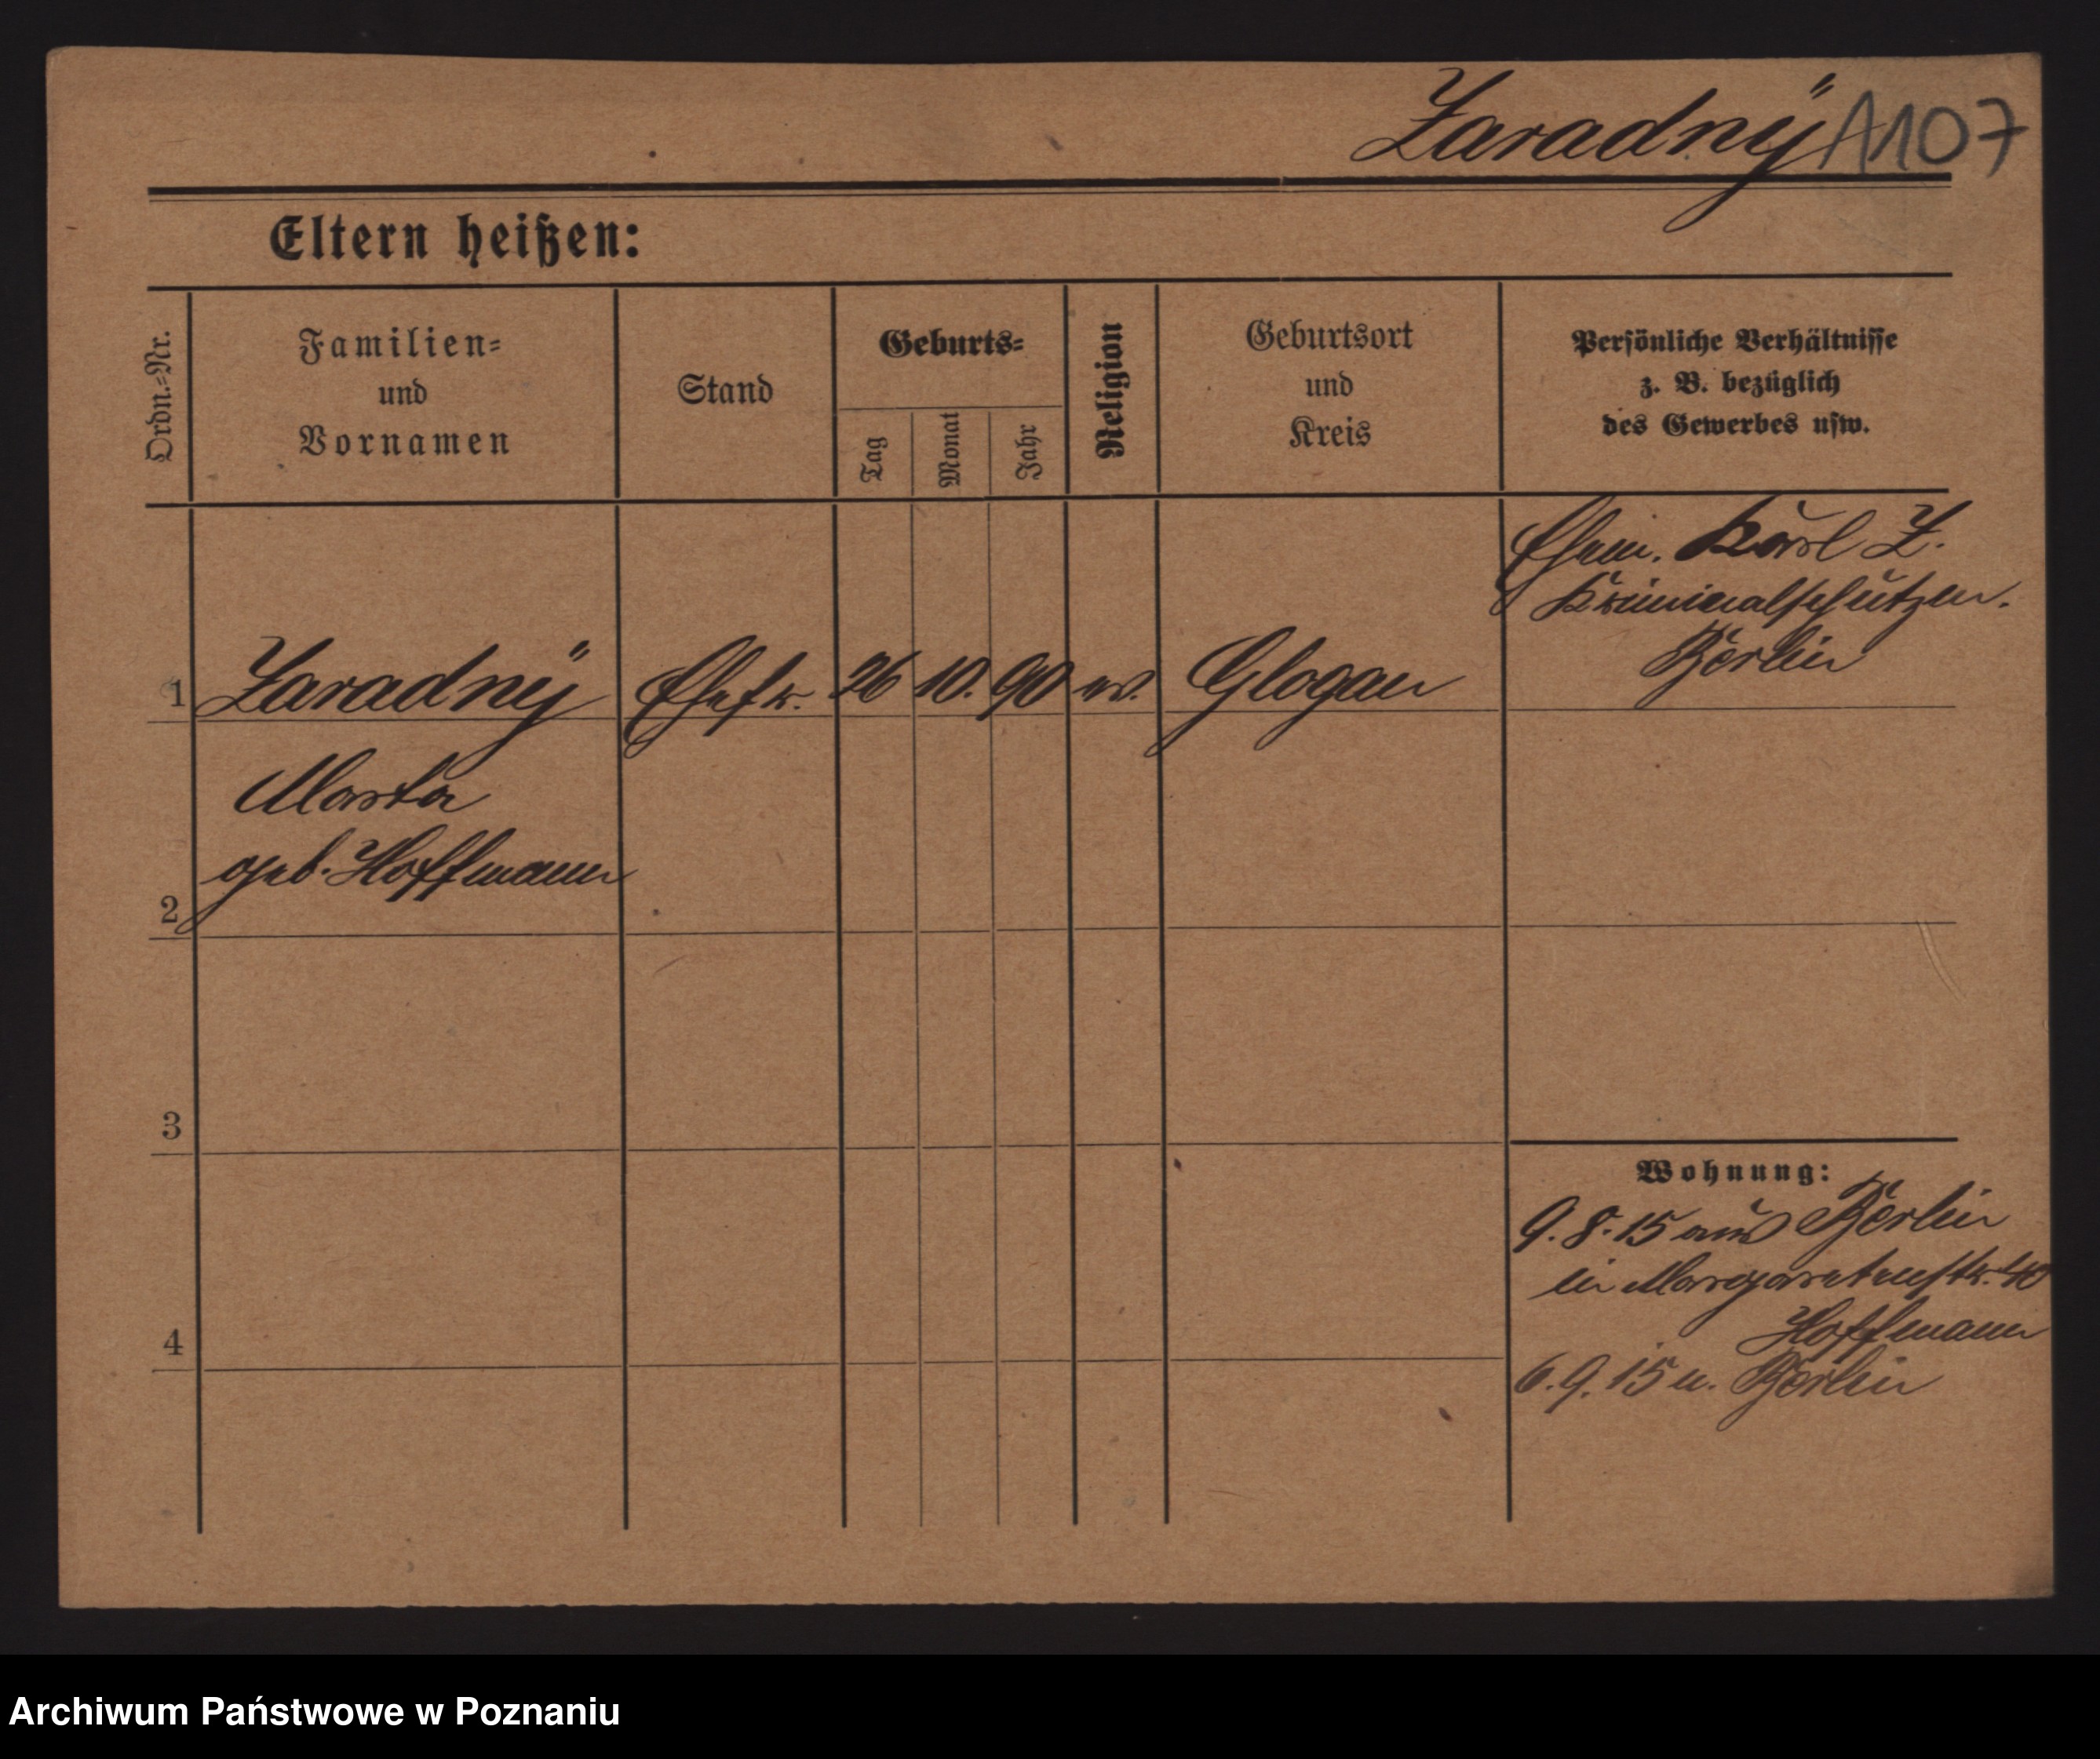 Zaradny A107
Eltern heißen:
Ordn.=Nr.
Familien=
und
Vornamen
Stand
Geburts=
Tag
Monat
Jahr
Religion
Geburtsort
und
Kreis
Persönliche Verhältnisse
z. B. bezüglich
des Gewerbes usw.
Ehem. Karl Z.
Berlin
1 Zaradny Ehefr. 26 10. 90 ev. Glogau
Marta
geb. Hoffmann
2
3
4
Wohnung:
9.8.15 aus Berlin
in Margaretenstr. 40
Hoffmann
6.9.15 n. Berlin
Archiwum Państwowe w Poznaniu